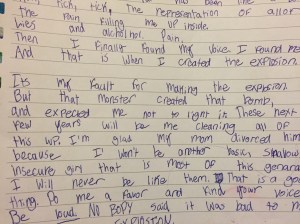 tick, tick, the representation of all of
the pain, killing me up inside.
lies and alcohol. Pain.
Then I finally found my voice. I found me
And that is when I created the explosion.
Its my fault for making the explosion
But that monster created that bomb,
and expected me not to right it. These next
few years will be me cleaning all of
this up. I'm glad my mom divorced him
because I won't be another basic, shallow
insecure girl that is most of this genera
I will never be like them. That is a ge
thing. Do me a favor and find your voice
Be loud. NO BODY said it was bad to
explosion.